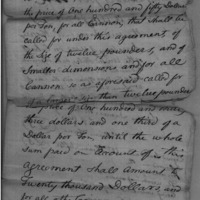 the price of One hundred and fifty dollars
per ton, for all Cannon, that shall be
called for under this agreement, of
the size of twelve pounders, and of
Smaller dimensions and for all
Cannon is as aforesaid called for
than twelve pounders
price of One hundred and
three dollars and one third of a
Dollar per ton until the whole
sum paid on Account of this
agreement shall amount to
twenty thousand Dollars, and
for all